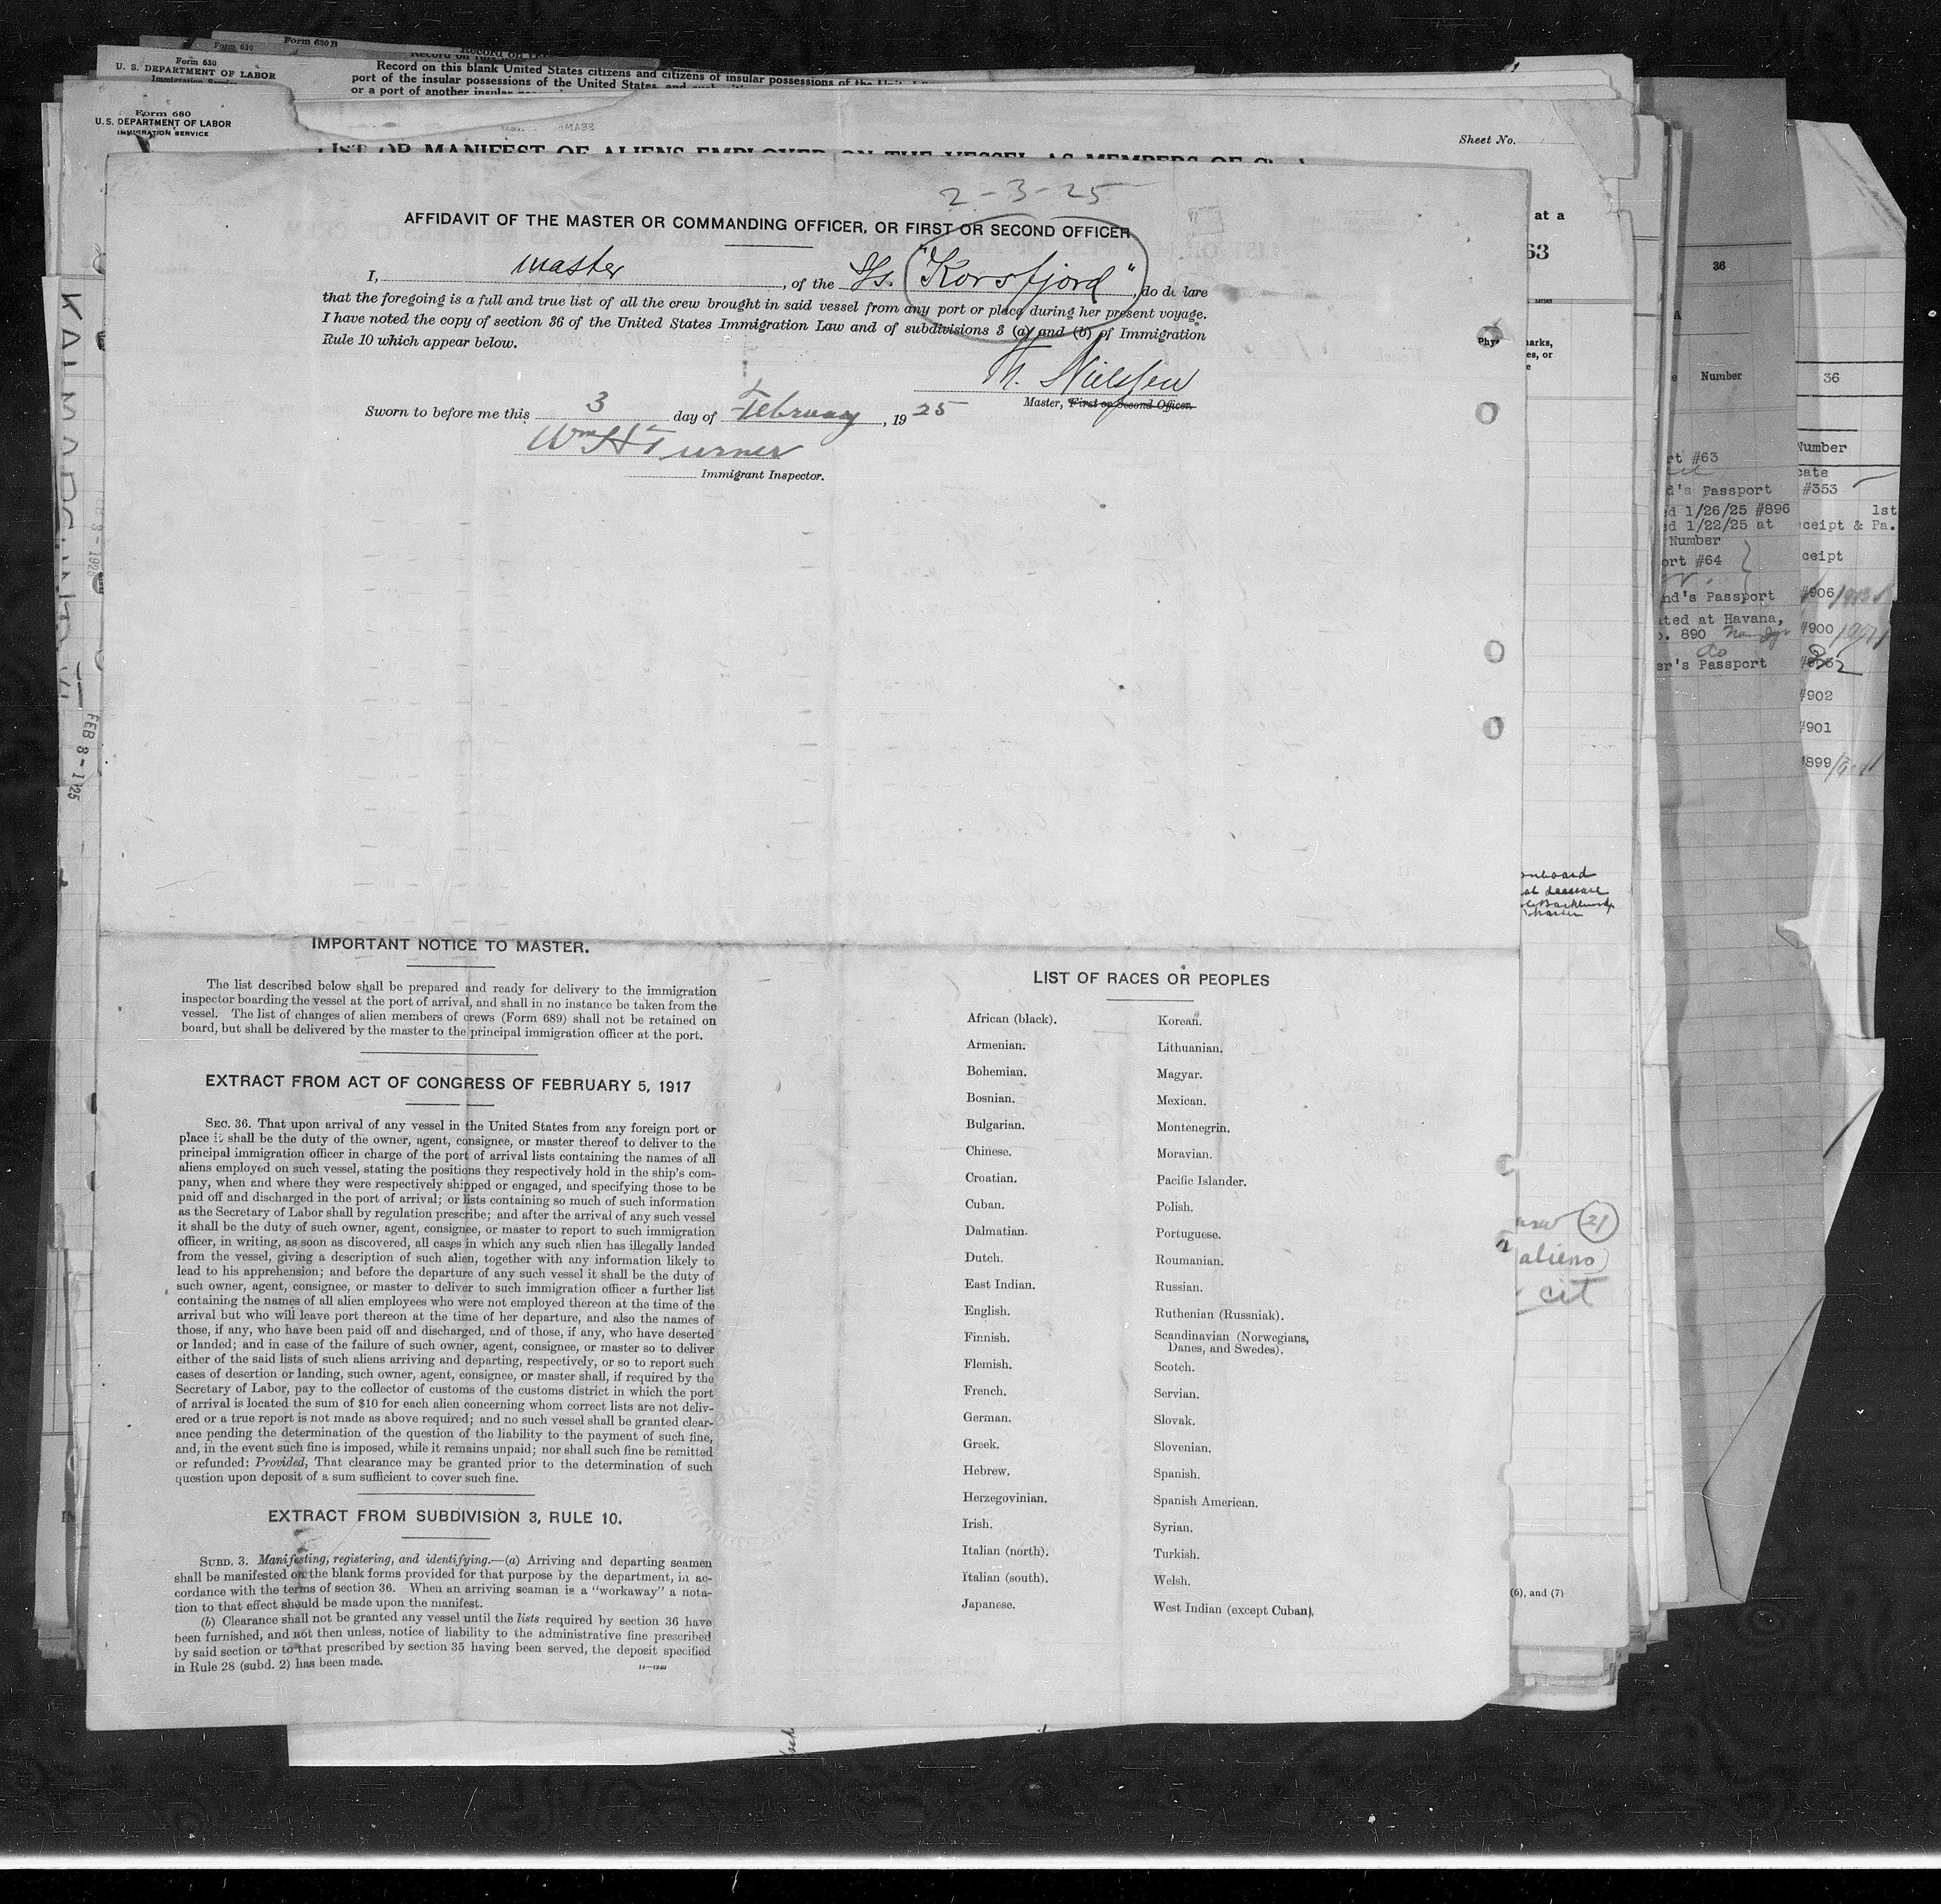 Form 630
Form 630 B
Form 630
U. S. DEPARTMENT OF LABOR
Immigration Service
Record on this blank United States citizens and citizens of insular possessions of the
port of the insular possessions of the United States, and
or a port of another insular
Form 680
U.S. DEPARTMENT OF LABOR
IMMIGRATION SERVICE
Sheet No.
LIST OR MANIFEST OF ALIENS EMPLOYED ON THE VESSEL AS MEMBERS OF
2-3-25
AFFIDAVIT OF THE MASTER OR COMMANDING OFFICER, OR FIRST OR SECOND OFFICER
I, master, of the S/s. "Korsfjord", do declare
that the foregoing is a full and true list of all the crew brought in said vessel from any port or place during her present voyage.
I have noted the copy of section 36 of the United States Immigration Law and of subdivisions 3 (a) and (b) of Immigration
Rule 10 which appear below.
M. Nielssen
Master, First or Second Officer.
Sworn to before me this 3 day of February, 1925
Wm H Turner
Immigrant Inspector.
IMPORTANT NOTICE TO MASTER.
The list described below shall be prepared and ready for delivery to the immigration
inspector boarding the vessel at the port of arrival, and shall in no instance be taken from the
vessel. The list of changes of alien members of crews (Form 689) shall not be retained on
board, but shall be delivered by the master to the principal immigration officer at the port.
EXTRACT FROM ACT OF CONGRESS OF FEBRUARY 5, 1917
SEC. 36. That upon arrival of any vessel in the United States from any foreign port or
place it shall be the duty of the owner, agent, consignee, or master thereof to deliver to the
principal immigration officer in charge of the port of arrival lists containing the names of all
aliens employed on such vessel, stating the positions they respectively hold in the ship's com-
pany, when and where they were respectively shipped or engaged, and specifying those to be
paid off and discharged in the port of arrival; or lists containing so much of such information
as the Secretary of Labor shall by regulation prescribe; and after the arrival of any such vessel
it shall be the duty of such owner, agent, consignee, or master to report to such immigration
officer, in writing, as soon as discovered, all cases in which any such alien has illegally landed
from the vessel, giving a description of such alien, together with any information likely to
lead to his apprehension; and before the departure of any such vessel it shall be the duty of
such owner, agent, consignee, or master to deliver to such immigration officer a further list
containing the names of all alien employees who were not employed thereon at the time of the
arrival but who will leave port thereon at the time of her departure, and also the names of
those, if any, who have been paid off and discharged, and of those, if any, who have deserted
or landed; and in case of the failure of such owner, agent, consignee, or master so to deliver
either of the said lists of such aliens arriving and departing, respectively, or so to report such
cases of desertion or landing, such owner, agent, consignee, or master shall, if required by the
Secretary of Labor, pay to the collector of customs of the customs district in which the port
of arrival is located the sum of $10 for each alien concerning whom correct lists are not deliv-
ered or a true report is not made as above required; and no such vessel shall be granted clear-
ance pending the determination of the question of the liability to the payment of such fine,
and, in the event such fine is imposed, while it remains unpaid; nor shall such fine be remitted
or refunded: Provided, That clearance may be granted prior to the determination of such
question upon deposit of a sum sufficient to cover such fine.
EXTRACT FROM SUBDIVISION 3, RULE 10.
SUBD. 3. Manifesting, registering, and identifying.—(a) Arriving and departing seamen
shall be manifested on the blank forms provided for that purpose by the department, in ac-
cordance with the terms of section 36. When an arriving seaman is a "workaway" a nota-
tion to that effect should be made upon the manifest.
(b) Clearance shall not be granted any vessel until the lists required by section 36 have
been furnished, and not then unless, notice of liability to the administrative fine prescribed
by said section or to that prescribed by section 35 having been served, the deposit specified
in Rule 28 (subd. 2) has been made.
14—1240
LIST OF RACES OR PEOPLES
African (black).
Armenian.
Bohemian.
Bosnian.
Bulgarian.
Chinese.
Croatian.
Cuban.
Dalmatian.
Dutch.
East Indian.
English.
Finnish.
Flemish.
French.
German.
Greek.
Hebrew.
Herzegovinian.
Irish.
Italian (north).
Italian (south).
Japanese.
Korean.
Lithuanian.
Magyar.
Mexican.
Montenegrin.
Moravian.
Pacific Islander.
Polish.
Portuguese.
Roumanian.
Russian.
Ruthenian (Russniak).
Scandinavian (Norwegians,
Danes, and Swedes).
Scotch.
Servian.
Slovak.
Slovenian.
Spanish.
Spanish American.
Syrian.
Turkish.
Welsh.
West Indian (except Cuban).
FEB 8 - 1925
at a
63
36
Number
rt #63
d's Passport
ed 1/26/25 #896
ed 1/22/25 at
Number
ort #64
nd's Passport
ated at Havana,
890
do
er's Passport
36
Number
cate
#353
1st
ceipt & Pa.
ceipt
#906
#900
#902
#901
899
onboard
21
aliens
cit
(6), and (7)